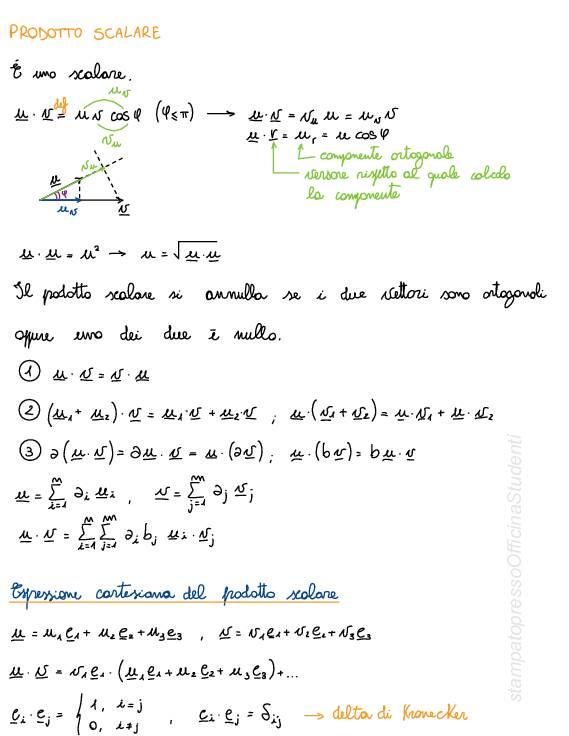 PRODOTTO SCALARE
È uno scalare.
u · v =def u v cos φ (φ ≤ π) → u · v = v_u u = u_v v
u_v
v_u
u · r = u_r = u cos φ
componente ortogonale
versore rispetto al quale calcolo
la componente
v_u
u
φ
u_v
v
u · u = u² → u = √(u · u)
Il prodotto scalare si annulla se i due vettori sono ortogonali
oppure uno dei due è nullo.
① u · v = v · u
② (u₁ + u₂) · v = u₁ · v + u₂ · v ; u · (v₁ + v₂) = u · v₁ + u · v₂
③ a(u · v) = au · v = u · (av) ; u · (bv) = b u · v
u = Σ_{i=1}^{n} a_i u_i , v = Σ_{j=1}^{m} a_j v_j
u · v = Σ_{i=1}^{n} Σ_{j=1}^{m} a_i b_j u_i · v_j
Espressione cartesiana del prodotto scalare
u = u₁e₁ + u₂e₂ + u₃e₃ , v = v₁e₁ + v₂e₂ + v₃e₃
u · v = v₁e₁ · (u₁e₁ + u₂e₂ + u₃e₃) + ...
e_i · e_j = { 1, i=j
0, i≠j , e_i · e_j = δ_ij → delta di Kronecker
stampatopressoOfficinaStudenti